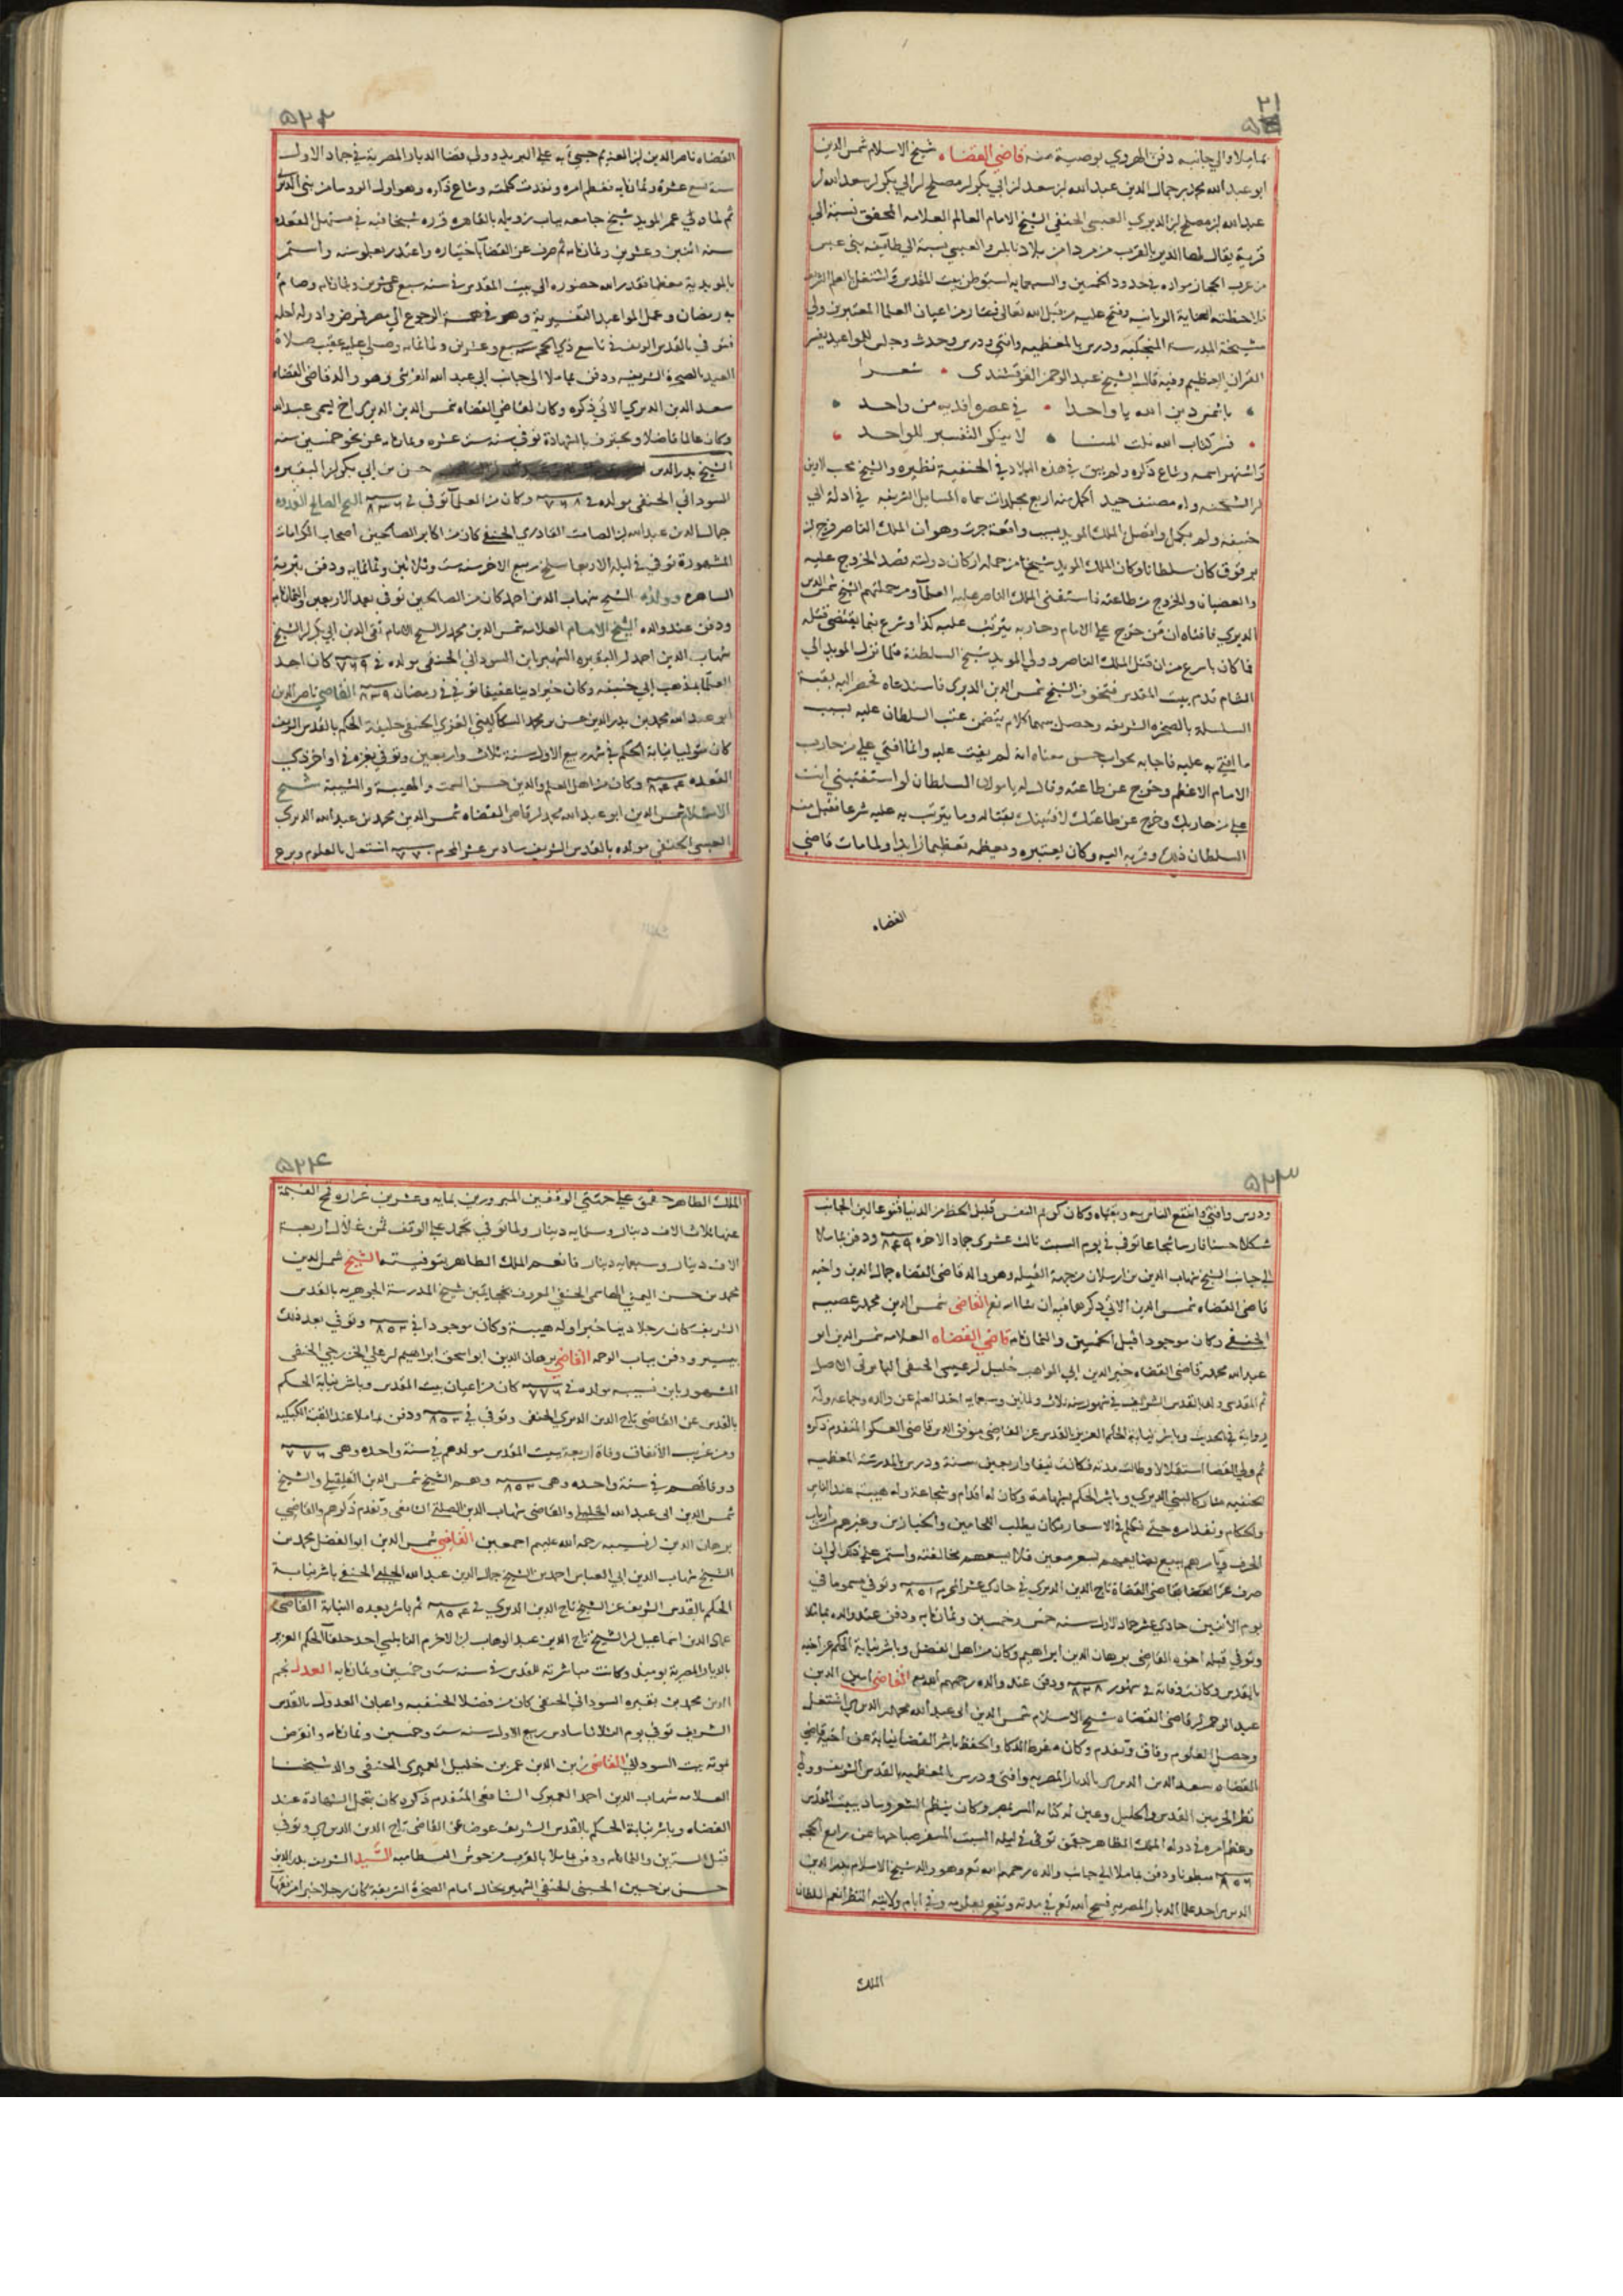 ٢١
بماملا والي جانبه دفن الهروي بوصية منه قاضي القضاه شيخ الاسلام شمس الدين
ابو عبد الله محمد بن جمال الدين عبد الله بن سعد بن ابي بكر بن مصلح بن ابي بكر بن سعد الله بن
عبد الله بن مصلح بن الديري العبسي الحنفي الشيخ الامام العالم العلامه المحقق نسبة الي
قرية يقال لها الدير بالقرب من مردا من بلاد نابلس والعبسي نسبة الي طايفه بني عبس
من عرب الحجاز مولده في حدود الخمسين والسبعمايه استوطن بيت المقدس واشتغل بالعلم الشريف
فلاحظته العناية الربانيه وفتح عليه من قبل الله تعالى فصار من اعيان العلما المعتبرين وولي
مشيخة المدرسة المنجكيه ودرس بالمعظميه وافتي ودرس وحدث وجلس للمواعيد بفسر
القران العظيم وفيه قال الشيخ عبد الرحمن القرقشندي شعرا
يا شمس دين الله يا واحدا في عصره افديه من واحد
فسر كتاب الله نلت المنا لا ينكر التفسير للواحد
واشتهر اسمه وشاع ذكره ولم يبق في هذه البلاد في الحنفية نظيره والشيخ محب الدين
بن الشحنه وله مصنف جيد اكمل منه اربع مجلدات سماه المسايل الشريفه في ادلة ابي
حنيفه ولم يكمل واتصل بالملك المويد بسبب واقعة جرت وهو ان الملك الناصر فرج بن
برقوق كان سلطانا وكان الملك المويد شيخ من جملة اركان دولته قصد الخروج عليه
والعصيان والخروج من طاعته فاستفتي الملك الناصر عليه العلما ومن جملتهم الشيخ شمس الدين
الديري فافتاه ان من خرج على الامام وحاربه يترتب عليه كذا وشرع بما يقتضي قتله
فما كان باسرع من ان قتل الملك الناصر وولي المويد شيخ السلطنة فلما نزل المويد الي
الشام قدم بيت المقدس فتخوف الشيخ شمس الدين الديري فاستدعاه فحضر اليه بقبة
السلسلة بالصخره الشريفه وحصل بينهما كلام يتضمن عتب السلطان عليه بسبب
ما افتي به عليه فاجابه بجواب حسن معناه انه لم يفت عليه وانما افتي علي من حارب
الامام الاعظم وخرج عن طاعته وقال له يا مولانا السلطان لو استفتيتني انت
علي من حاربك وخرج عن طاعتك لافتيتك بقتاله وما يترتب به عليه شرعا فقبل منه
السلطان ذلك وقربه اليه وكان يعتبره ويعظمه تعظيما زايدا ولما مات قاضي
القضاه
٥٢٢
القضاه ناصر الدين بن العديم جهز اليه علي البريد وولي قضا الديار المصرية في جماد الاولى
سنه تسع عشرة وثمانمايه فعظم امره ونفذت كلمته وشاع ذكره وهو اول الروسا من بني الديري
ثم لما بني عمر المويد شيخ جامعه بباب زويله بالقاهره قرره شيخا فيه في مستهل القعده
سنه اثنين وعشرين وثمانمايه ثم صرف عن القضا باختياره واعتذر بعلو سنه واستمر
بالمويدية معظما فقدر الله حضوره الي بيت المقدس في سنه سبع وعشرين وثمانمايه وصام
به رمضان وعمل المواعيد التفسيرية وهو في همة الرجوع الي مصر فمرض وادركه اجله
فتوفي بالقدس الشريف في تاسع ذي الحجه سنة سبع وعشرين وثمانمايه وصلي عليه عقب صلاة
العيد بالصخرة الشريفه ودفن بماملا الي جانب ابي عبد الله القرشي وهو والد قاضي القضاه
سعد الدين الديري الاتي ذكره وكان لقاضي القضاه شمس الدين الديري اخ يسمي عبد الله
وكان عالما فاضلا ويحترف بالشهادة توفي سنه ست عشره وثمانمايه عن نحو خمسين سنه
الشيخ بدر الدين حسن بن ابي بكر بن البقيره
السوداني الحنفي مولده في ٧٦٨ وكان من العلما توفي في ٨٣٦ الشيخ الصالح القدوه
جمال الدين عبد الله بن الصامت القادري الحنفي كان من اكابر الصالحين اصحاب الكرامات
المشهورة توفي في ليلة الاربعا سلخ ربيع الاخر سنه ست وثلاثين وثمانمايه ودفن بتربة
الساهره وولده الشيخ شهاب الدين احمد كان من الصالحين توفي بعد الاربعين والثمانمايه
ودفن عند والده الشيخ الامام العلامه شمس الدين محمد بن الشيخ الامام تقي الدين ابي بكر بن الشيخ
شهاب الدين احمد بن البقيره الشهير بابن السوداني الحنفي مولده في ٧٦٩ كان احد
العلما بمذهب ابي حنيفه وكان خيرا دينا عفيفا توفي في رمضان ٨٣٩ القاضي ناصر الدين
ابو عبد الله محمد بن بدر الدين حسن بن محمد السكاكيني الغزي الحنفي خليفة الحكم بالقدس الشريف
كان متوليا نيابة الحكم في شهر ربيع الاول سنة ثلاث واربعين وتوفي بغزه في اواخر ذي
القعده ٨٤٤ وكان من اهل العلم والدين حسن السمت والهيبة والشيبة شيخ
الاسلام شمس الدين ابو عبد الله محمد بن قاضي القضاه شمس الدين محمد بن عبد الله الديري
العبسي الحنفي مولده بالقدس الشريف سادس عشر المحرم ٧٧٠ اشتغل بالعلوم وبرع
٥٢٣
ودرس وافتي وانتفع الناس به وبفتياه وكان كريم النفس قليل الحظ من الدنيا قنوعا لين الجانب
شكلا حسنا فارسا شجاعا توفي في يوم السبت ثالث عشري جماد الاخره ٨٤٩ ودفن بماملا
الي جانب الشيخ شهاب الدين بن ارسلان من جهة القبله وهو والد قاضي القضاه جمال الدين واخيه
قاضي القضاه شمس الدين الاتي ذكرهما فيه ان شا الله تع القاضي شمس الدين محمد بن عصيه
الحنفي وكان موجودا قبل الخمسين والثمانمايه قاضي القضاه العلامه شمس الدين ابو
عبد الله محمد بن قاضي القضاه خير الدين ابي المواهب خليل بن عيسي الحنفي البابرتي الاصل
ثم المقدسي ولد بالقدس الشريف في شهور سنه ثلاث وثمانين وسبعمايه اخذ العلم عن والده وجماعه وله
رواية في الحديث وباشر نيابة الحكم العزيز بالقدس عن القاضي موفق الدين قاضي العسكر المتقدم ذكره
ثم ولي القضا استقلالا وطالت مدته فكانت نيفا واربعين سنة ودرس بالمدرسة المعظميه
الحنفيه مشاركا لبني الديري وباشر الحكم بشهامة وكان له اقدام وشجاعة وله هيبة عند الناس
والحكام ونفذ امره حتى تكلم في الاسعار فكان يطلب اللحامين والخبازين وغيرهم من ارباب
الحرف ويامرهم ببيع بضايعهم بسعر معين فلا يسعهم مخالفته واستمر علي ذلك الي ان
صرف عن القضا بقاضي القضاة تاج الدين الديري في حادي عشر المحرم ٨٥١ وتوفي مسموما في
يوم الاثنين حادي عشر جماد الاول سنه خمس وخمسين وثمانمايه ودفن عند والده بماملا
وتوفي قبله اخوه القاضي برهان الدين ابراهيم وكان من اهل الفضل وباشر نيابة الحكم عن اخيه
بالقدس وكانت وفاته في شهور ٨٣٨ ودفن عند والده رحمهم الله تع القاضي امين الدين
عبد الرحمن بن قاضي القضاه شيخ الاسلام شمس الدين ابي عبد الله محمد بن الديري اشتغل
وحصل العلوم وفاق وتقدم وكان مفرط الذكا والحفظ باشر القضا نيابة عن اخيه قاضي
القضاه سعد الدين الديري بالديار المصريه وافتي ودرس بالمعظميه بالقدس الشريف وولي
نظر الحرمين القدس والخليل وعين لكتابة السر بمصر وكان ينظم الشعر وساد ببيت المقدس
وعظم امره في دولة الملك الظاهر جقمق توفي في ليلة السبت المسفر صباحها عن رابع الحجه
٨٥٦ مبطونا ودفن بماملا الي جانب والده رحمهم الله تع وهو والد شيخ الاسلام بدر الدين
الديري احد علما الديار المصريه فسح الله تع في مدته ونفع بعلومه وفي ايام ولايته النظر انعم السلطان
الملك
٥٢٤
الملك الظاهر جقمق علي جهتي الوقفين المبرورين بمايه وعشرين غراره قمح القيمة
عنها ثلاث الاف دينار وستمايه دينار ولما توفي تجمد علي الوقف ثمن غلال اربعة
الاف دينار وسبعمايه دينار فانعم الملك الظاهر بتوفيته الشيخ شمس الدين
محمد بن حسن اليمني الهاسي الحنفي المعروف شيخ المدرسة الجوهريه بالقدس
الشريف كان رجلا دينا خيرا وله هيبة وكان موجودا في ٨٥٣ وتوفي بعد ذلك
بيسير ودفن بباب الرحمه القاضي برهان الدين ابو اسحق ابراهيم بن علي الخزرجي الحنفي
المشهور بابن نسيبه مولده في ٧٧٦ كان من اعيان بيت المقدس وباشر نيابة الحكم
بالقدس عن القاضي تاج الدين الديري الحنفي وتوفي في ٨٥٣ ودفن بماملا عند القبة الكبكيه
ومن غريب الاتفاق وفاة اربعة ببيت المقدس مولدهم في سنة واحده وهي ٧٧٦
ووفاتهم في سنة واحده وهي ٨٥٣ وهم الشيخ شمس الدين القلقيلي والشيخ
شمس الدين ابي عبد الله الخليلي والقاضي شهاب الدين الصلتي الشافعي وتقدم ذكرهم والقاضي
برهان الدين بن نسيبه رحمة الله عليهم اجمعين القاضي شمس الدين ابو الفضل محمد بن
الشيخ شهاب الدين ابي العباس احمد بن الشيخ جمال الدين عبد الله الخليلي الحنفي باشر نيابة
الحكم بالقدس الشريف عن الشيخ تاج الدين الديري في ٨٥٤ ثم باشر بعده النيابه القاضي
عماد الدين اسماعيل بن الشيخ تاج الدين عبد الوهاب بن الاخرم النابلسي احد خلفا الحكم العزيز
بالديار المصرية يوميذ وكانت مباشرته للقدس في سنه ست وخمسين وثمانمايه العدل نجم
الدين محمد بن بقيره السوداني الحنفي كان من فضلا الحنفيه واعيان العدول بالقدس
الشريف توفي يوم الثلاثا سادس ربيع الاول سنه ست وخمسين وثمانمايه وانقرض
بموته بيت السوداني القاضي زين الدين عمر بن خليل العميري الحنفي والد شيخنا
العلامه شهاب الدين احمد العميري الشافعي المتقدم ذكره كان يتحمل الشهادة عند
القضاه وباشر نيابة الحكم بالقدس الشريف عوضا عن القاضي تاج الدين الديري وتوفي
قبل الستين والثمانمايه ودفن بماملا بالقرب من حوش البسطاميه السيد الشريف بدر الدين
حسن بن حسين الحسيني الحنفي الشهير بخال امام الصخرة الشريفة كان رجلا خيرا من فقها